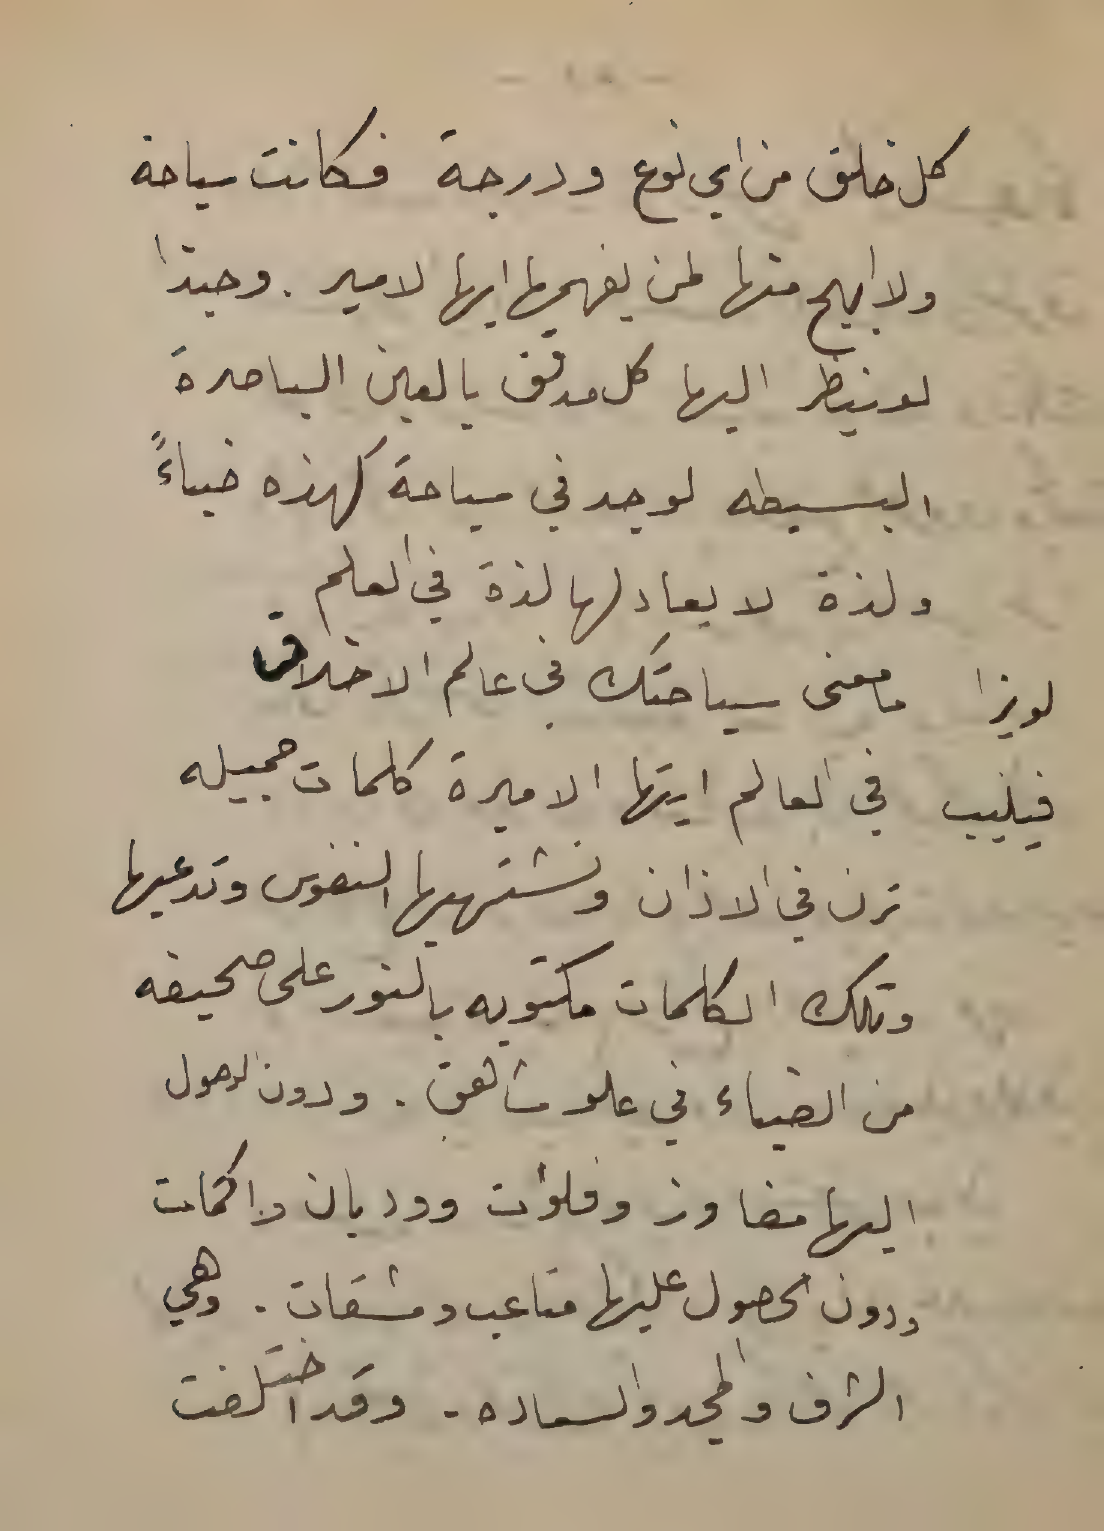 كل خلق من اي نوع ودرجة فكانت سياحة
ولا ابهج منها لمن يفهمها ايها الامير . وحبذا
لو ينظر اليها كل مدقق بالعين الباصرة
البسيطه لوجد في سياحة كهذه ضياءً
ولذة لا يعادلها لذة في العلم
لويزا ما معنى سياحتك في عالم الاخلاق
فيليب في العالم ايتها الاميرة كلمات جميله
ترن في الاذان وتشتهيها النفوس وتدعيها
وتلك الكلمات مكتوبه بالنور على صحيفه
من الضياء في علو شاهق . ودون الوصول
اليها مفاوز وفلوات ووديان واكمات
ودون الحصول عليها متاعب ومشقات . وهي
الشرف والمجد والسعاده - وقد اختلفت